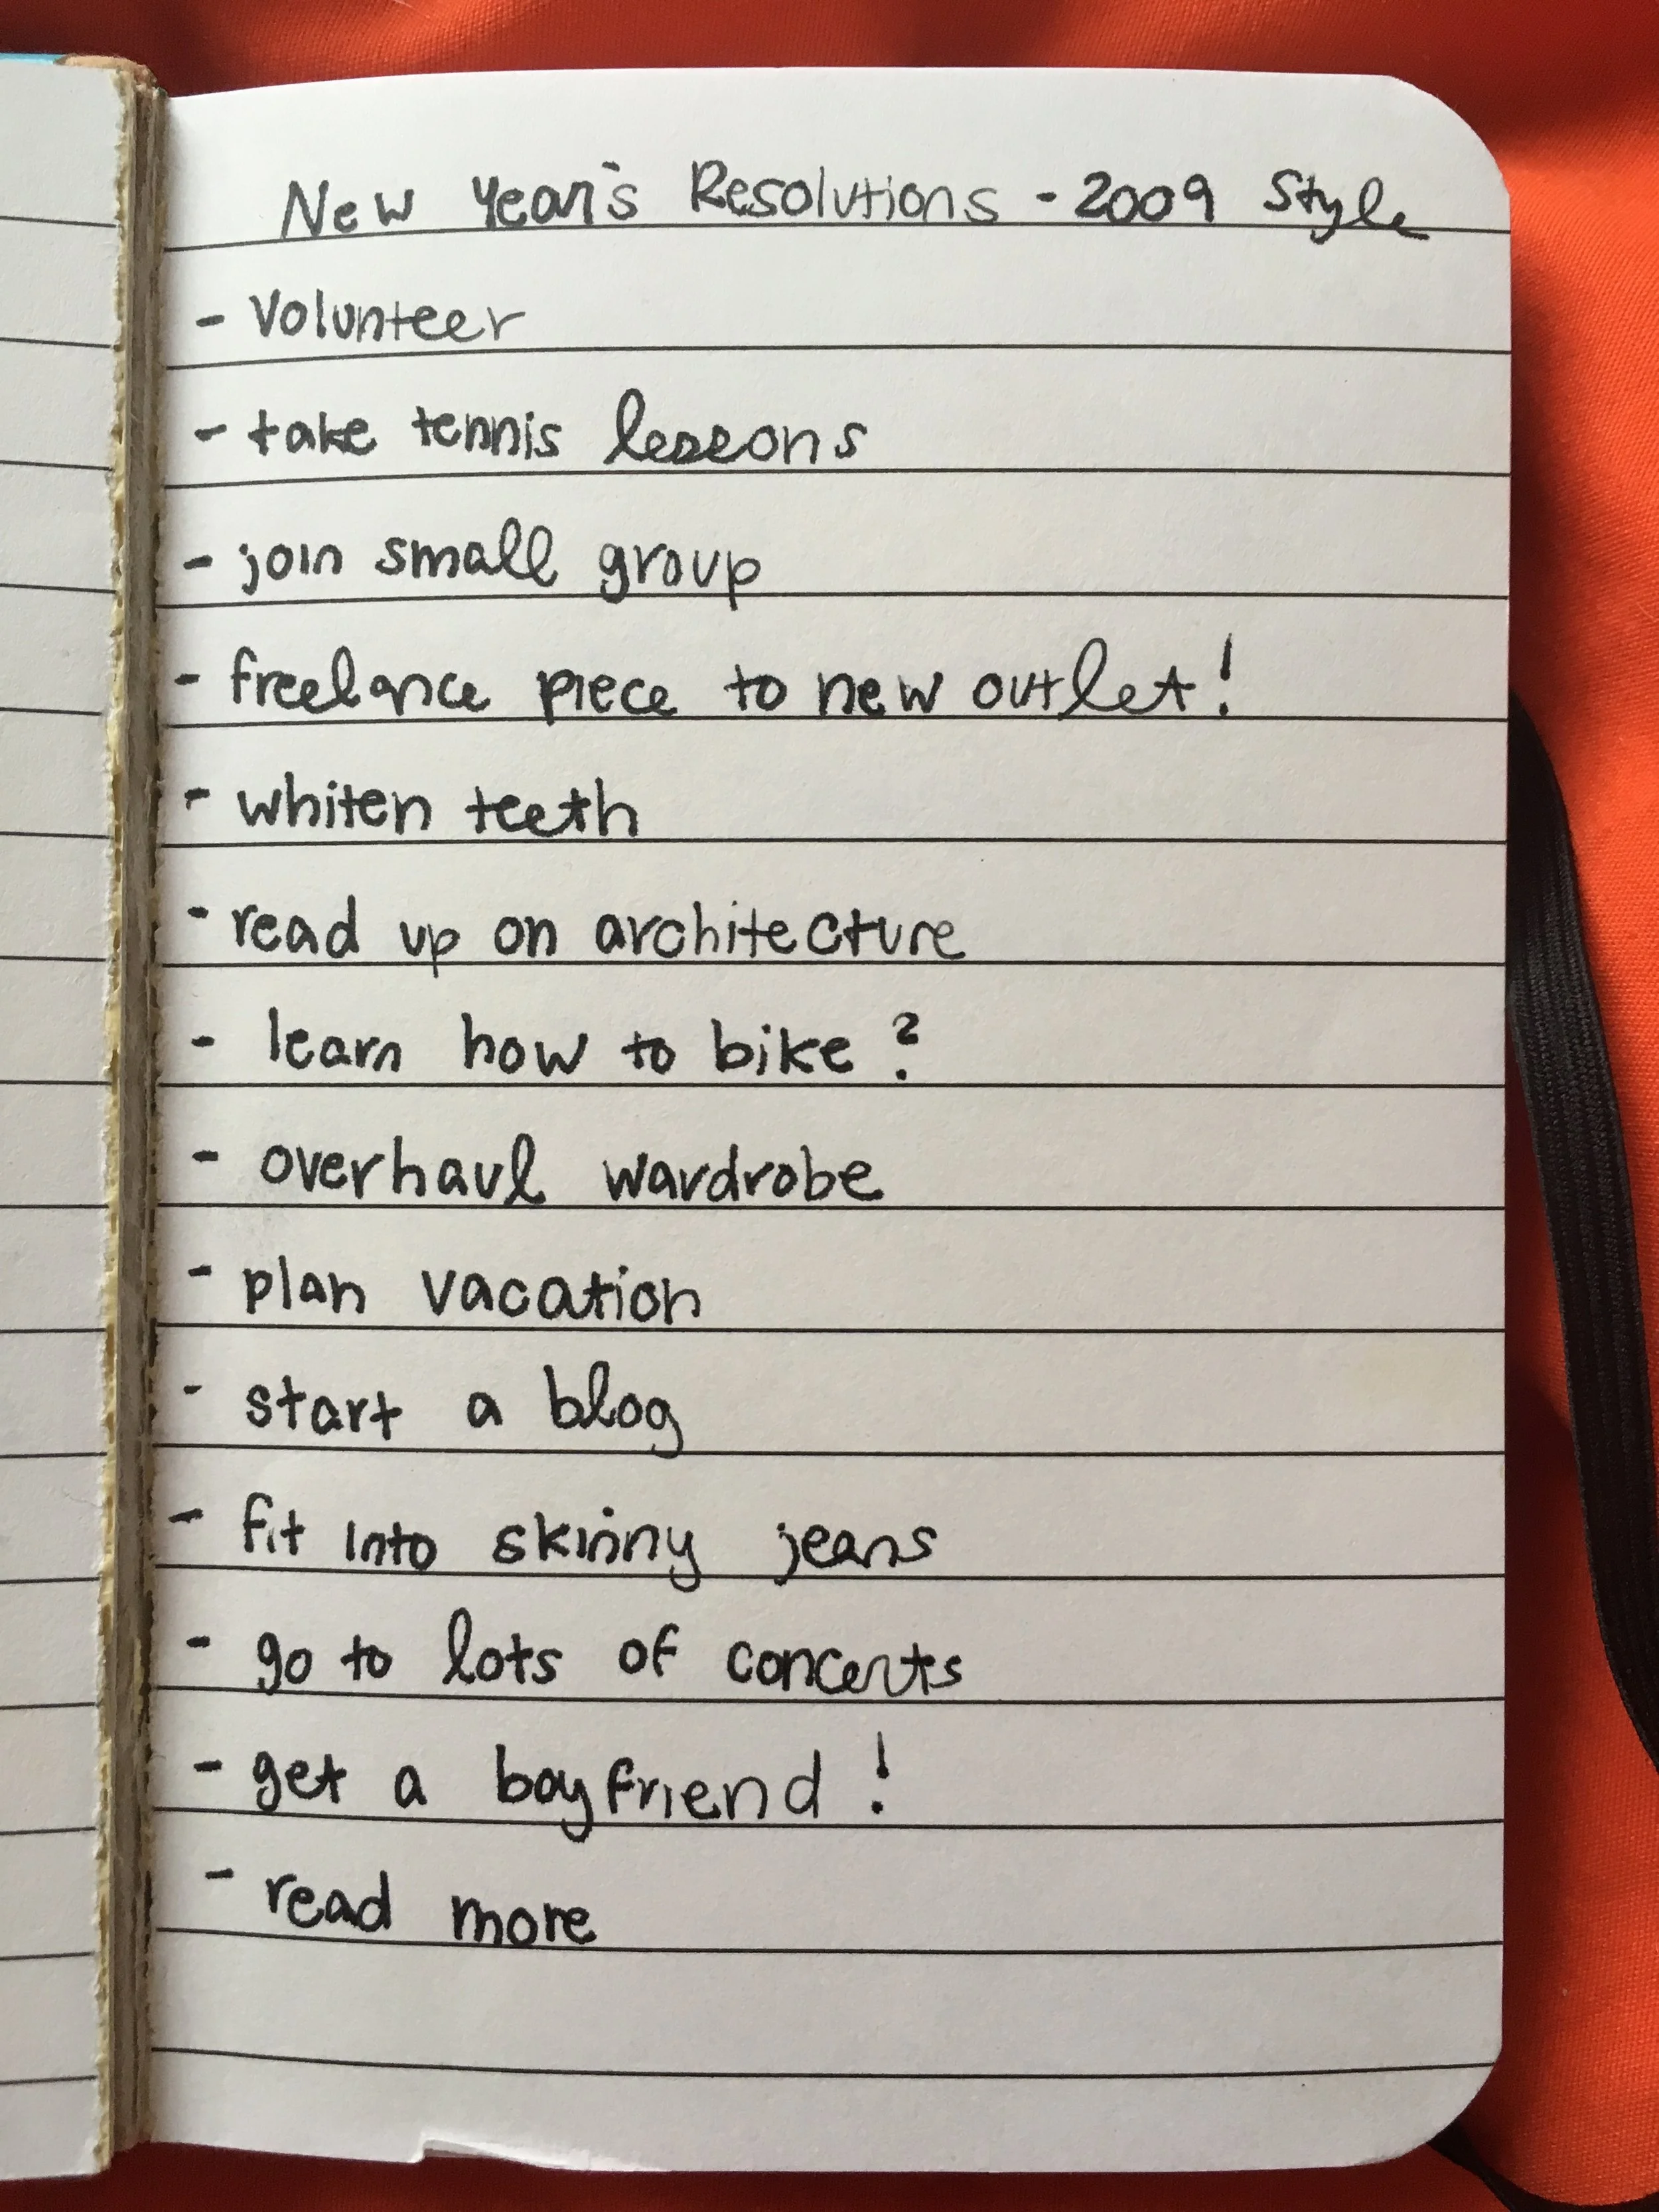 New Year's Resolutions - 2009 Style
- Volunteer
- take tennis lessons
- join small group
- freelance piece to new outlet!
- whiten teeth
- read up on architecture
- learn how to bike?
- overhaul wardrobe
- plan vacation
- start a blog
- fit into skinny jeans
- go to lots of concerts
- get a boyfriend!
- read more